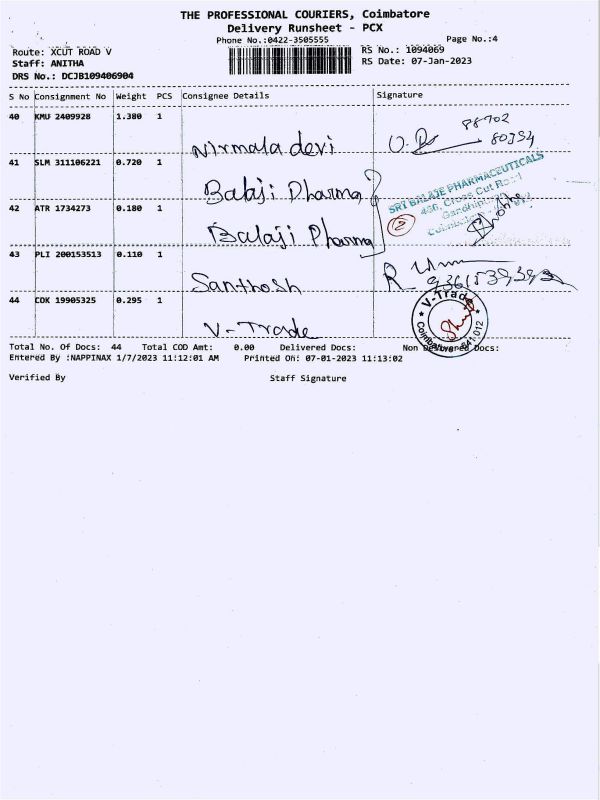 THE PROFESSIONAL COURIERS, Coimbatore
Delivery Runsheet - PCX
Phone No.:0422-3505555
Page No.:4
Route: XCUT ROAD V
RS No.: 1094069
Staff: ANITHA
RS Date: 07-Jan-2023
DRS No.: DCJB109406904
S No Consignment No Weight PCS Consignee Details Signature
40 KMU 2409928 1.380 1 Nirmala devi 98702 80354
41 SLM 311106221 0.720 1 Balaji Pharma
SRI BALAJE PHARMACEUTICALS
466, Cross Cut Road
Gandhipuram
2
42 ATR 1734273 0.180 1 Balaji Pharma
43 PLI 200153513 0.110 1 Santhosh
44 CDK 19905325 0.295 1 V-Trade
V-Trade
Coimbatore 641 012
Total No. Of Docs: 44 Total COD Amt: 0.00 Delivered Docs: Non Delivered Docs:
Entered By :NAPPINAX 1/7/2023 11:12:01 AM Printed On: 07-01-2023 11:13:02
Verified By Staff Signature